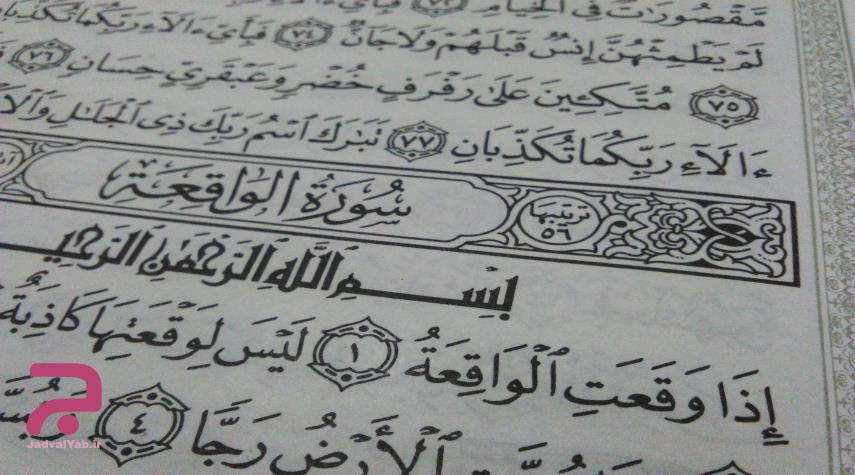 مَّقْصُورَٰتٌ فِى ٱلْخِيَامِ ٧٢ فَبِأَىِّ ءَالَآءِ
لَمْ يَطْمِثْهُنَّ إِنسٌ قَبْلَهُمْ وَلَا جَآنٌّ ٧٤ فَبِأَىِّ ءَالَآءِ رَبِّكُمَا تُكَذِّبَانِ
٧٥ مُتَّكِـِٔينَ عَلَىٰ رَفْرَفٍ خُضْرٍ وَعَبْقَرِىٍّ حِسَانٍ ٧٦
ءَالَآءِ رَبِّكُمَا تُكَذِّبَانِ ٧٧ تَبَٰرَكَ ٱسْمُ رَبِّكَ ذِى ٱلْجَلَٰلِ
ترتيبها ٥٦ سُورَةُ الوَاقِعَةِ
بِسْمِ ٱللَّهِ ٱلرَّحْمَٰنِ ٱلرَّحِيمِ
إِذَا وَقَعَتِ ٱلْوَاقِعَةُ ١ لَيْسَ لِوَقْعَتِهَا كَاذِبَةٌ
ٱلْأَرْضُ رَجًّا ٤
JadvalYab.ir